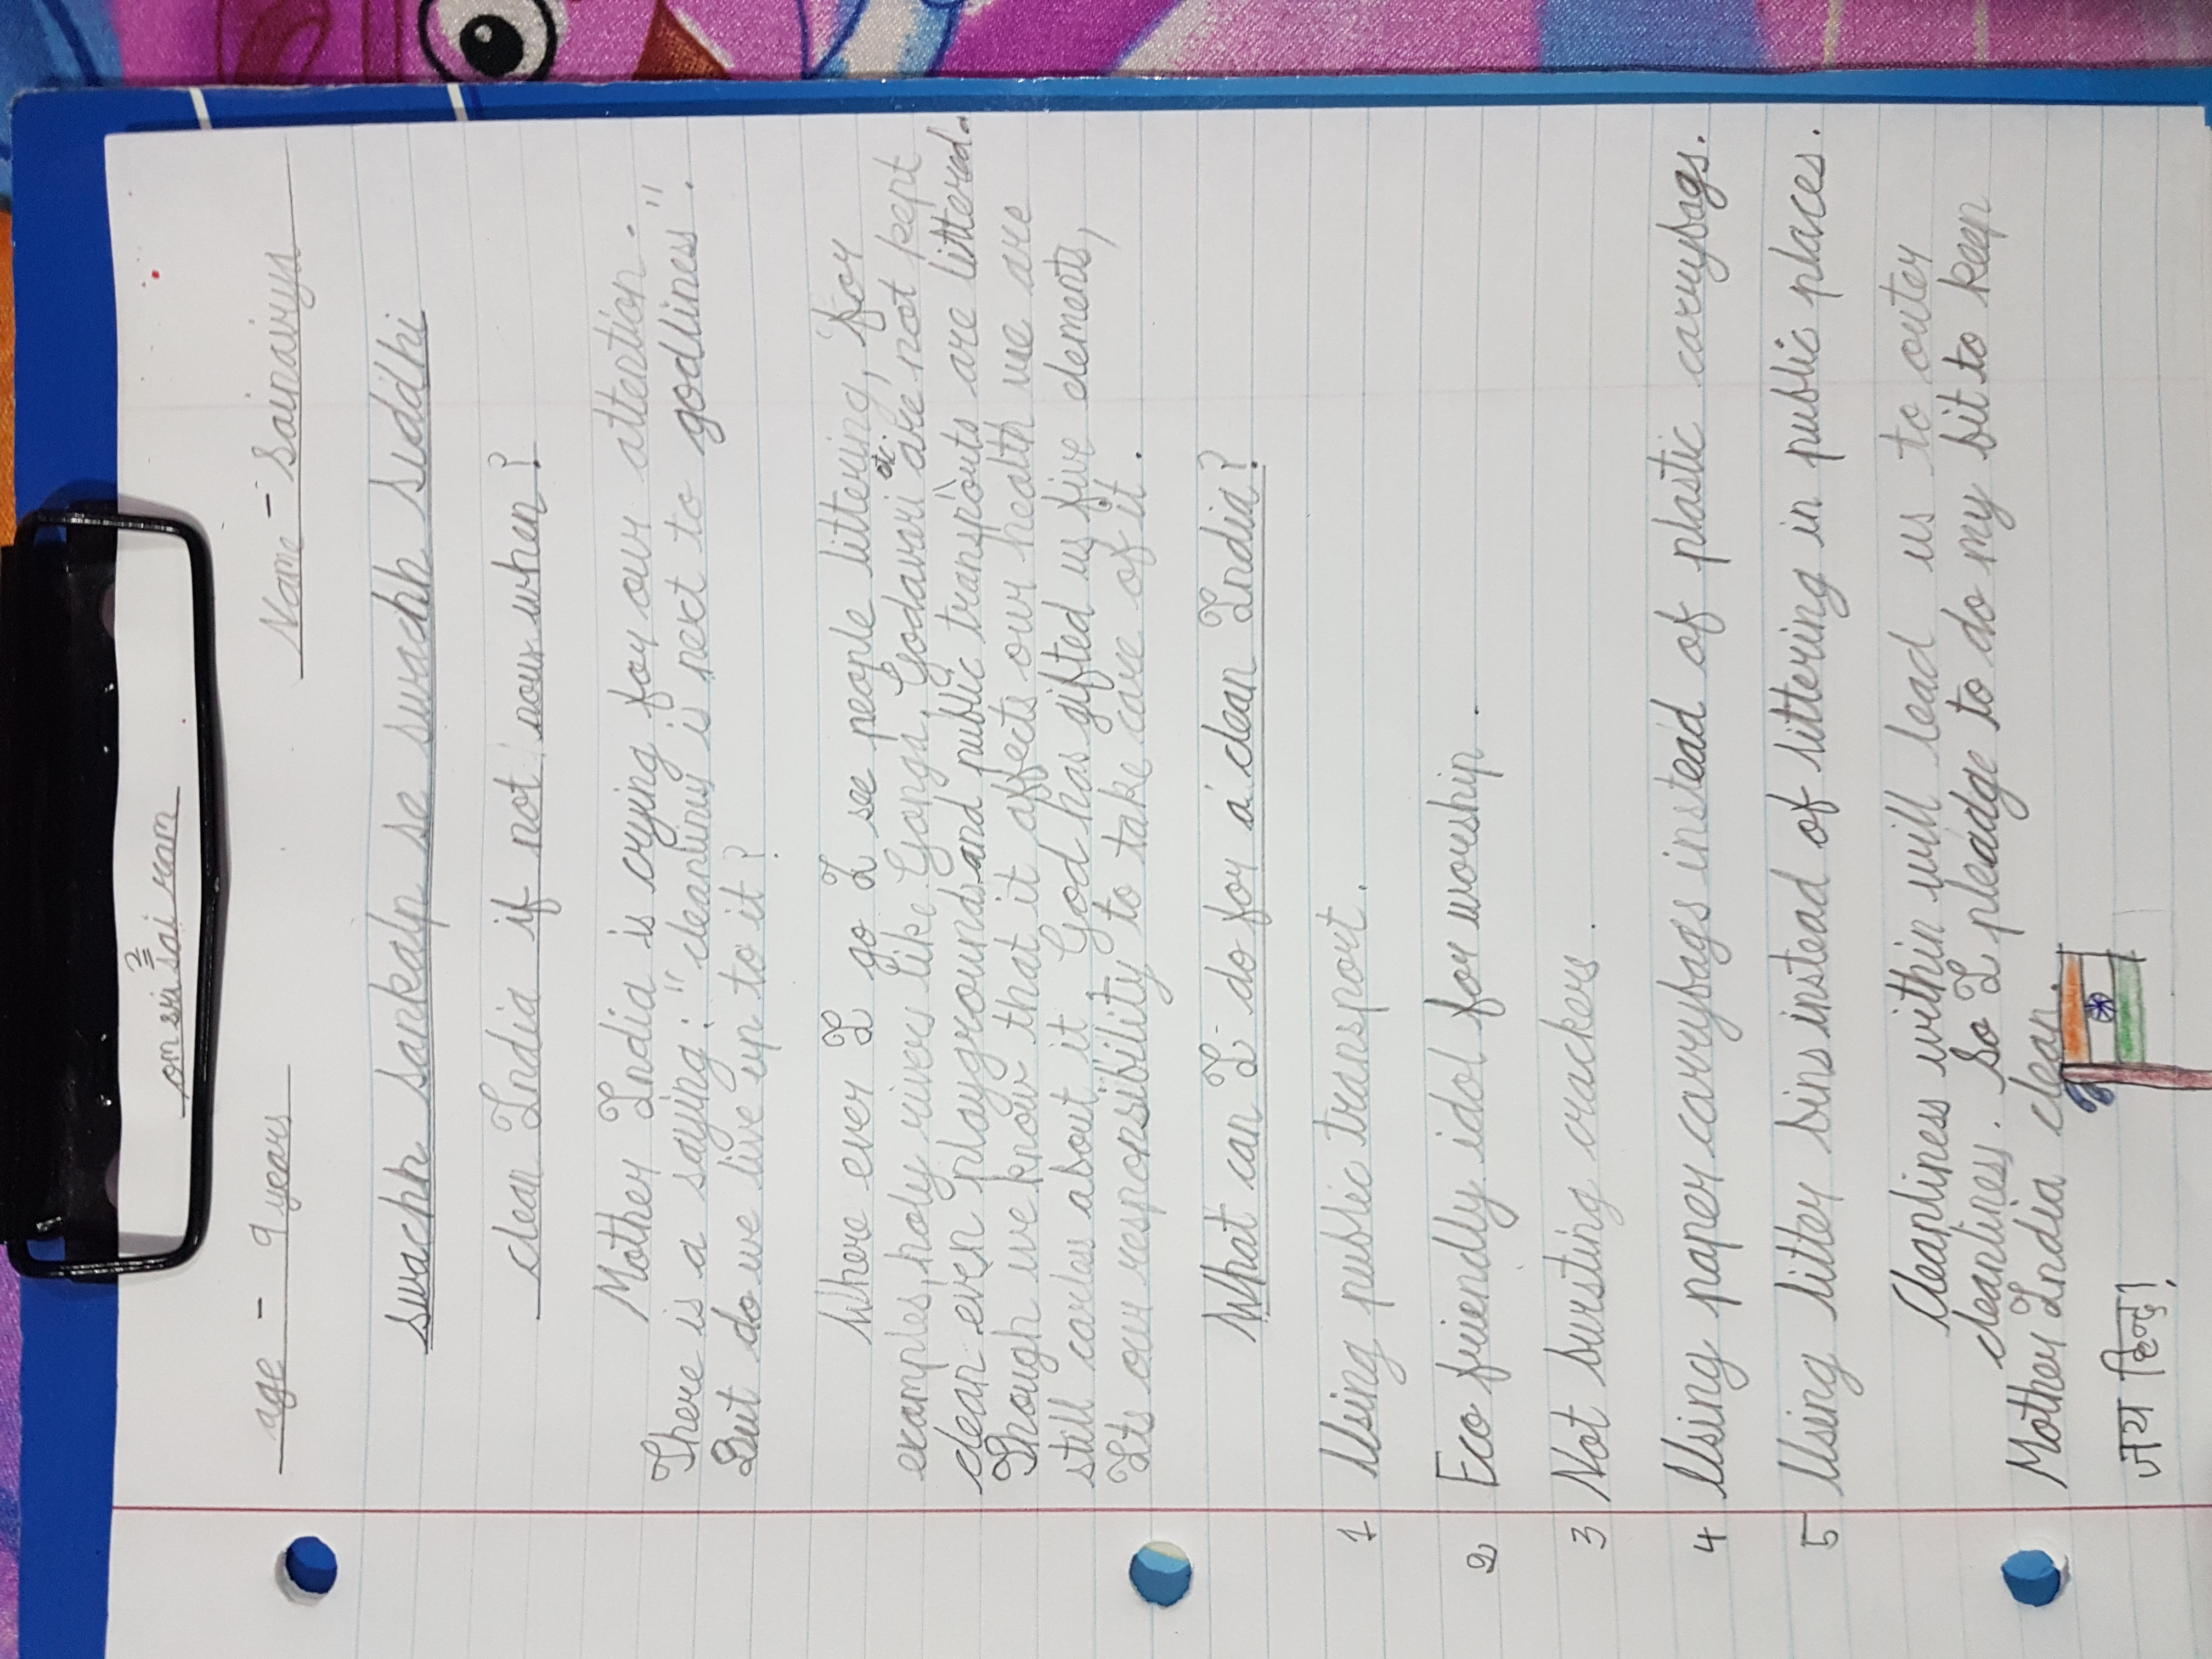 om sri sai ram
age - 9 years Name - Sainavya
swachh sankalp se swachh siddhi
clean India if not now when?
Mother India is crying for our attention.
There is a saying: "cleanliness is next to godliness".
But do we live up to it?
Where ever I go I see people littering, for
examples, holy rivers like Ganga, Godavari etc. are not kept
clean even playgrounds and public transports are littered.
Though we know that it affects our health we are
still carless about it God has gifted us five elements,
Its our responsibility to take care of it.
What can I do for a clean India?
1 Using public transport.
2 Eco friendly idol for worship.
3 Not bursting crackers.
4 Using paper carrybags instead of plastic carrybags.
5 Using litter bins instead of littering in public places.
Cleanliness within will lead us to outer
cleanliness. So I pleadge to do my bit to keep
Mother India clean.
जय हिन्द!